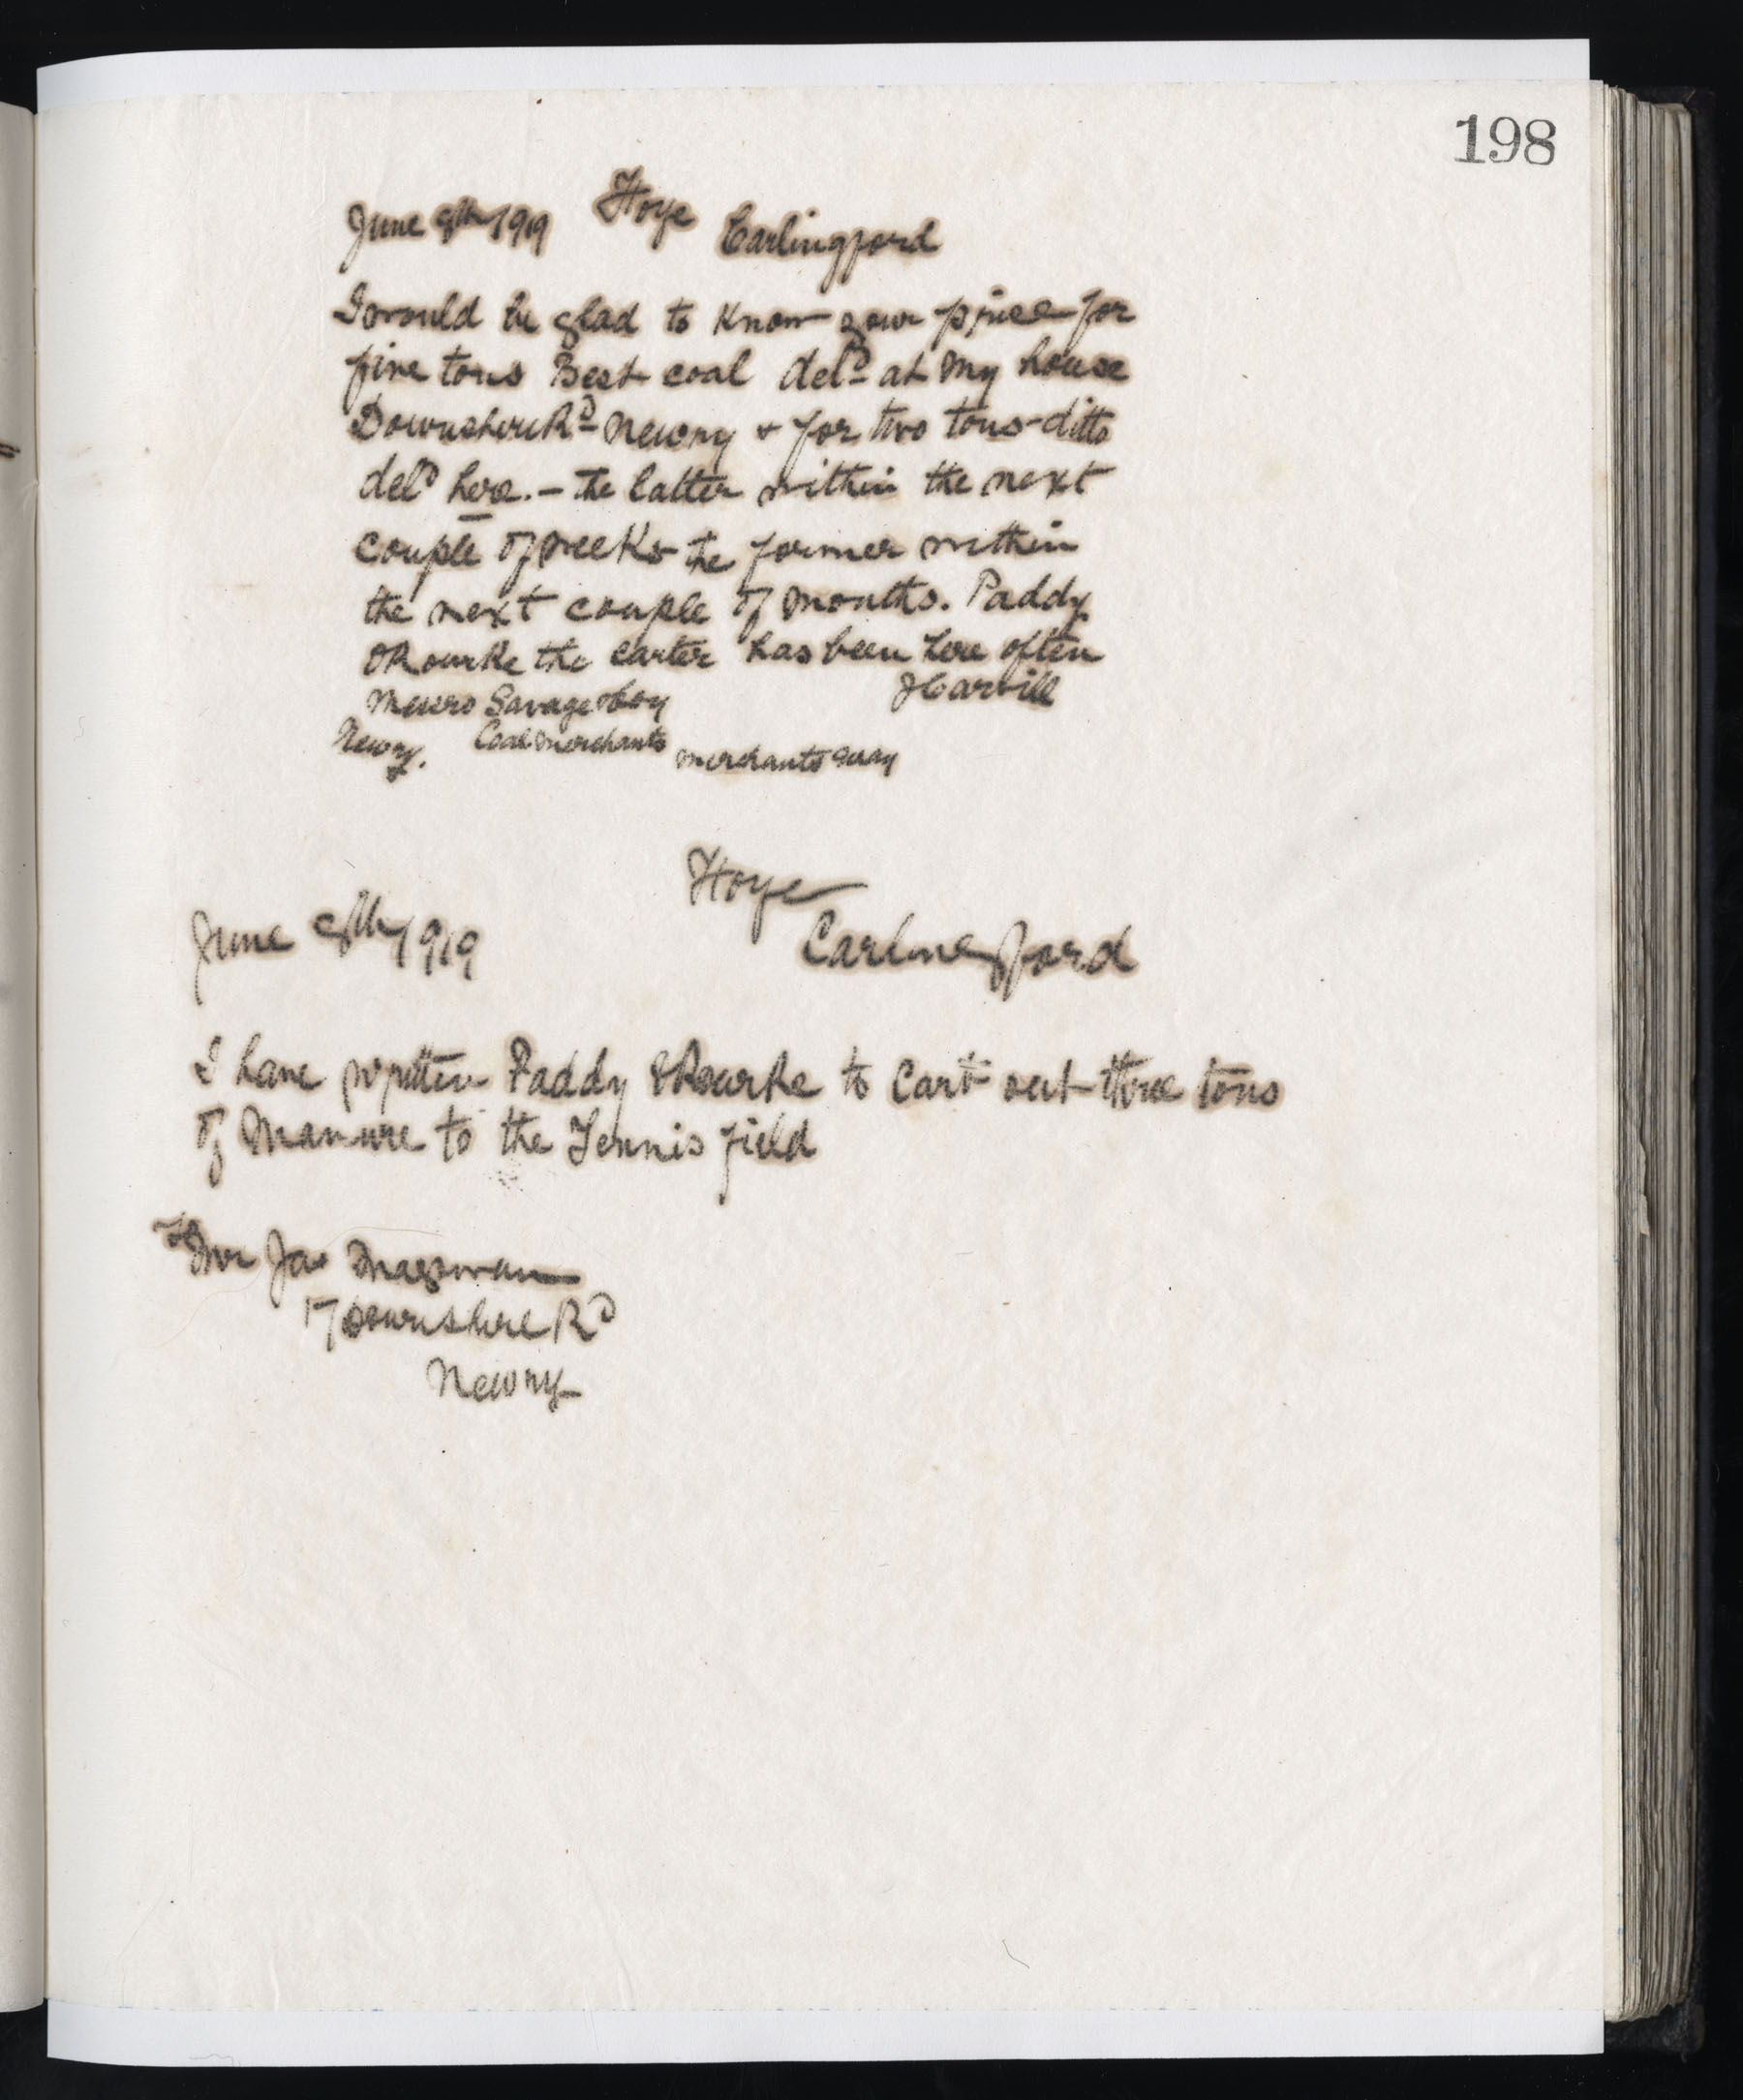 198
June 9th 1919 Hoye Carlingford
I would be glad to know your price for
five tons Best coal deld at my house
Downshire Rd Newry & for two tons ditto
deld here. – the latter within the next
couple of weeks the former within
the next couple of months. Paddy
ORourke the carter has been here often
JCarvill
Messrs Savage &Coy
Newry. Coal Merchants Merchants Quay
Hoye
June 9th 1919 Carlingford
I have written Paddy ORourke to Cart out three tons
of Manure to the Tennis field
To Mr Jas Magowan
17 Downshire Rd
Newry